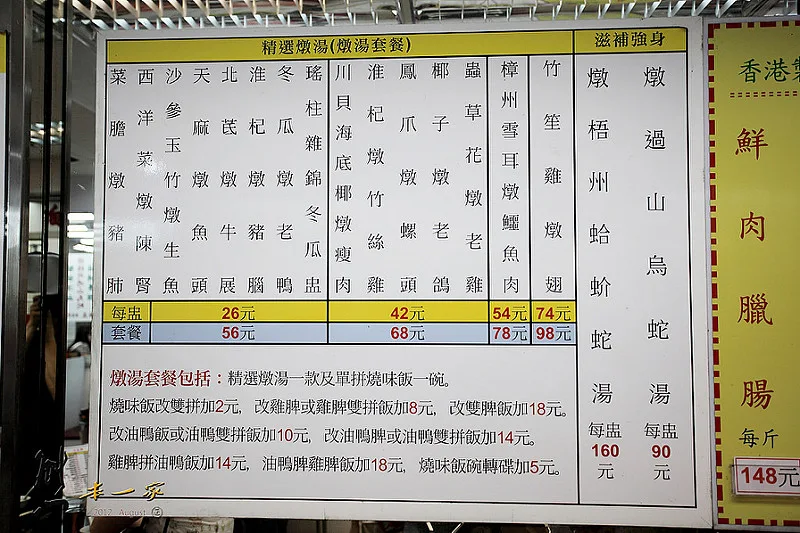 精選燉湯(燉湯套餐)
菜膽燉豬肺
西洋菜燉陳腎
沙參玉竹燉生魚
天麻燉魚頭
北芪燉牛展
淮杞燉豬腦
冬瓜燉老鴨
瑤柱雜錦冬瓜盅
川貝海底椰燉瘦肉
淮杞燉竹絲雞
鳳爪燉螺頭
椰子燉老鴿
蟲草花燉老雞
樟州雪耳燉鱷魚肉
竹笙雞燉翅
每盅 26元 42元 54元 74元
套餐 56元 68元 78元 98元
燉湯套餐包括：精選燉湯一款及單拼燒味飯一碗。
燒味飯改雙拼加2元, 改雞脾或雞脾雙拼飯加8元, 改雙脾飯加18元。
改油鴨飯或油鴨雙拼飯加10元, 改油鴨脾或油鴨雙拼飯加14元。
雞脾拼油鴨飯加14元, 油鴨脾雞脾飯加18元, 燒味飯碗轉碟加5元。
滋補強身
燉梧州蛤蚧蛇湯
每盅
160
元
燉過山烏蛇湯
每盅
90
元
香港製
鮮肉臘腸
每斤
148元
幸一家
2012 August